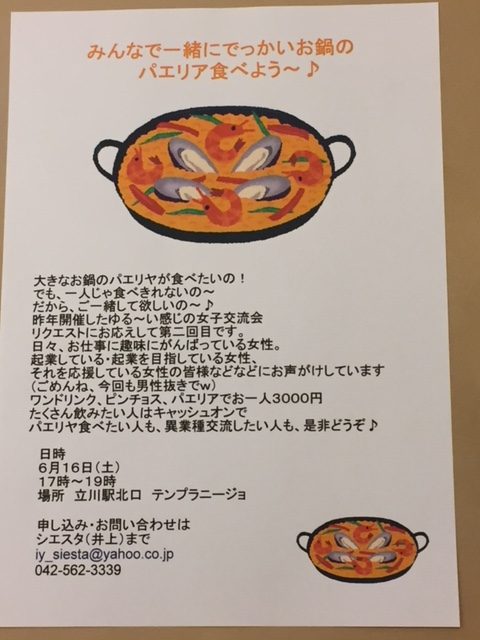 みんなで一緒にでっかいお鍋の
パエリア食べよう～♪
大きなお鍋のパエリヤが食べたいの！
でも、一人じゃ食べきれないの～
だから、ご一緒して欲しいの～♪
昨年開催したゆる～い感じの女子交流会
リクエストにお応えして第二回目です。
日々、お仕事に趣味にがんばっている女性。
起業している・起業を目指している女性、
それを応援している女性の皆様などなどにお声がけしています
（ごめんね、今回も男性抜きでw）
ワンドリンク、ピンチョス、パエリアでお一人３０００円
たくさん飲みたい人はキャッシュオンで
パエリヤ食べたい人も、異業種交流したい人も、是非どうぞ♪
日時
６月１６日（土）
１７時～１９時
場所　立川駅北口　テンプラニージョ
申し込み・お問い合わせは
シエスタ（井上）まで
iy_siesta@yahoo.co.jp
042-562-3339